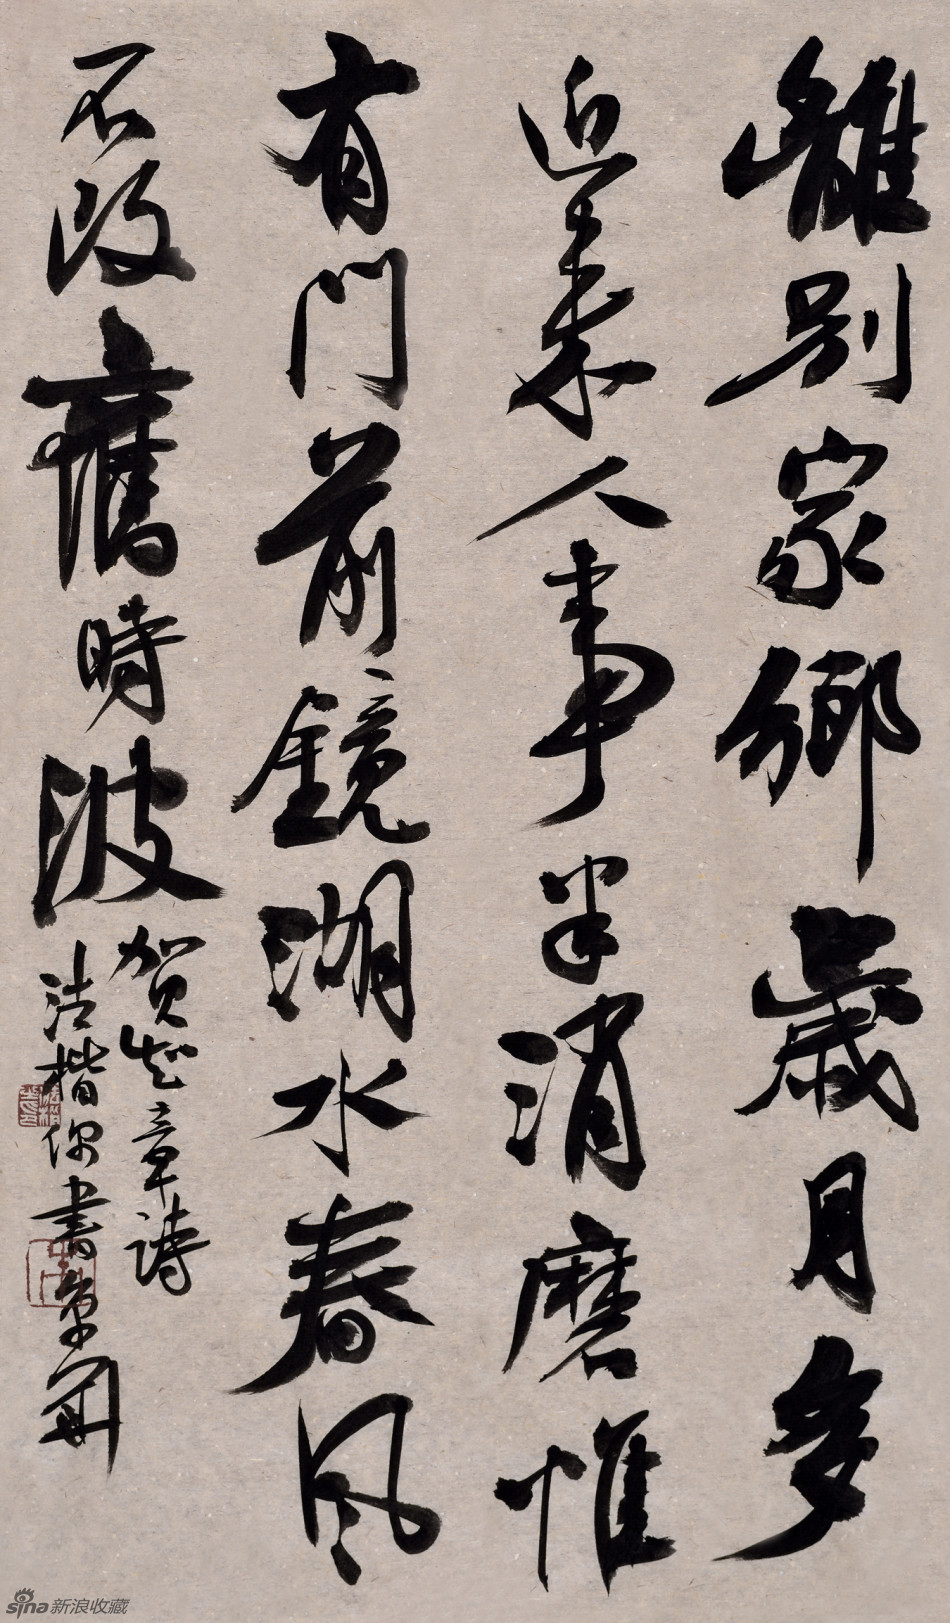 離別家鄉歲月多
近來人事半消磨惟
有門前鏡湖水春風
不改舊時波
賀知章詩
洁楷偶書
sina新浪收藏